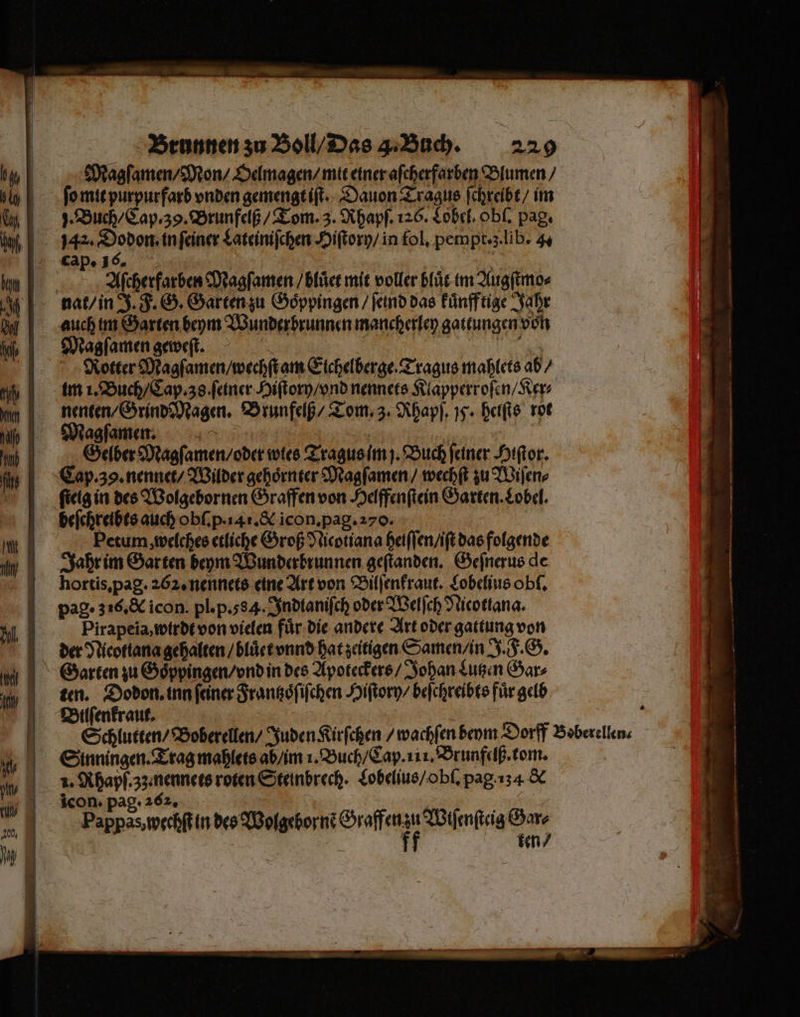 Brunnen zu Boll/Das 4.Buch. 229
Magſamen/Mon/ Oelmagen/ mit einer aſcherfarben Blumen /
ſo mit purpurfarb vnden gemengt iſt. Dauon Tragus ſchreibt / im
j.Buch/Cap.39.Brunfelß/Tom. 3. Rhapſ. 126. Lobel. obſ. pag.
142. Dodon. in ſeiner Lateiniſchen Hiſtory/ in fol, pempt.3.lib. 4.
cap. 16.
Aſcherfarben Magſamen / blüet mit voller blüt im Augſtmo⸗
nat/in J. F. G. Garten zu Göppingen / ſeind das künfftige Jahr
auch im Garten beym Wunderbrunnen mancherley gattungen von
Magſamen geweſt.
Rotter Magſamen/wechſt am Eichelberge.Tragus mahlets ab /
im 1.Buch/Cap.38.ſeiner Hiſtory/vnd nennets Klapperroſen/Ker⸗
nenten/GrindMagen. Brunfelß/ Tom. 3. Rhapſ. 15. heiſts rot
Magſamen.
Gelber Magſamen/oder wies Tragus im j. Buch ſeiner Hiſtor.
Cap.39.nennet/ Wilder gehörnter Magſamen / wechſt zu Wiſen⸗
ſteig in des Wolgebornen Graffen von Helffenſtein Garten.Lobel.
beſchreibts auch obſ.p.141.& icon.pag.270.
Petum,welches etliche Groß Nicotiana heiſſen/iſt das folgende
Jahr im Garten beym Wunderbrunnen geſtanden. Geſnerus de
hortis,pag. 262.nennets eine Art von Bilſenkraut. Lobelius obſ.
pag. 316.& icon. pl.p.584. Indianiſch oder Welſch Nicotiana.
Pirapeia,wirdt von vielen für die andere Art oder gattung von
der Nicotiana gehalten / blüet vnnd hat zeitigen Samen/in J.F.G.
Garten zu Göppingen/vnd in des Apoteckers/ Johan Lutzen Gar⸗
ten. Dodon. inn ſeiner Frantzöſiſchen Hiſtory/ beſchreibts für gelb
Bilſenkraut.
Schlutten/ Boberellen/ Juden Kirſchen / wachſen beym Dorff Boberellen.
Sinningen.Trag mahlets ab/im 1.Buch/Cap.111.Brunfelß.tom.
1. Rhapſ.33.nennets roten Steinbrech. Lobelius/obſ. pag.134 &
icon. pag. 262.
Pappas,wechſt in des Wolgebornē Graffen zu Wiſenſteig Gar⸗
ff ten/